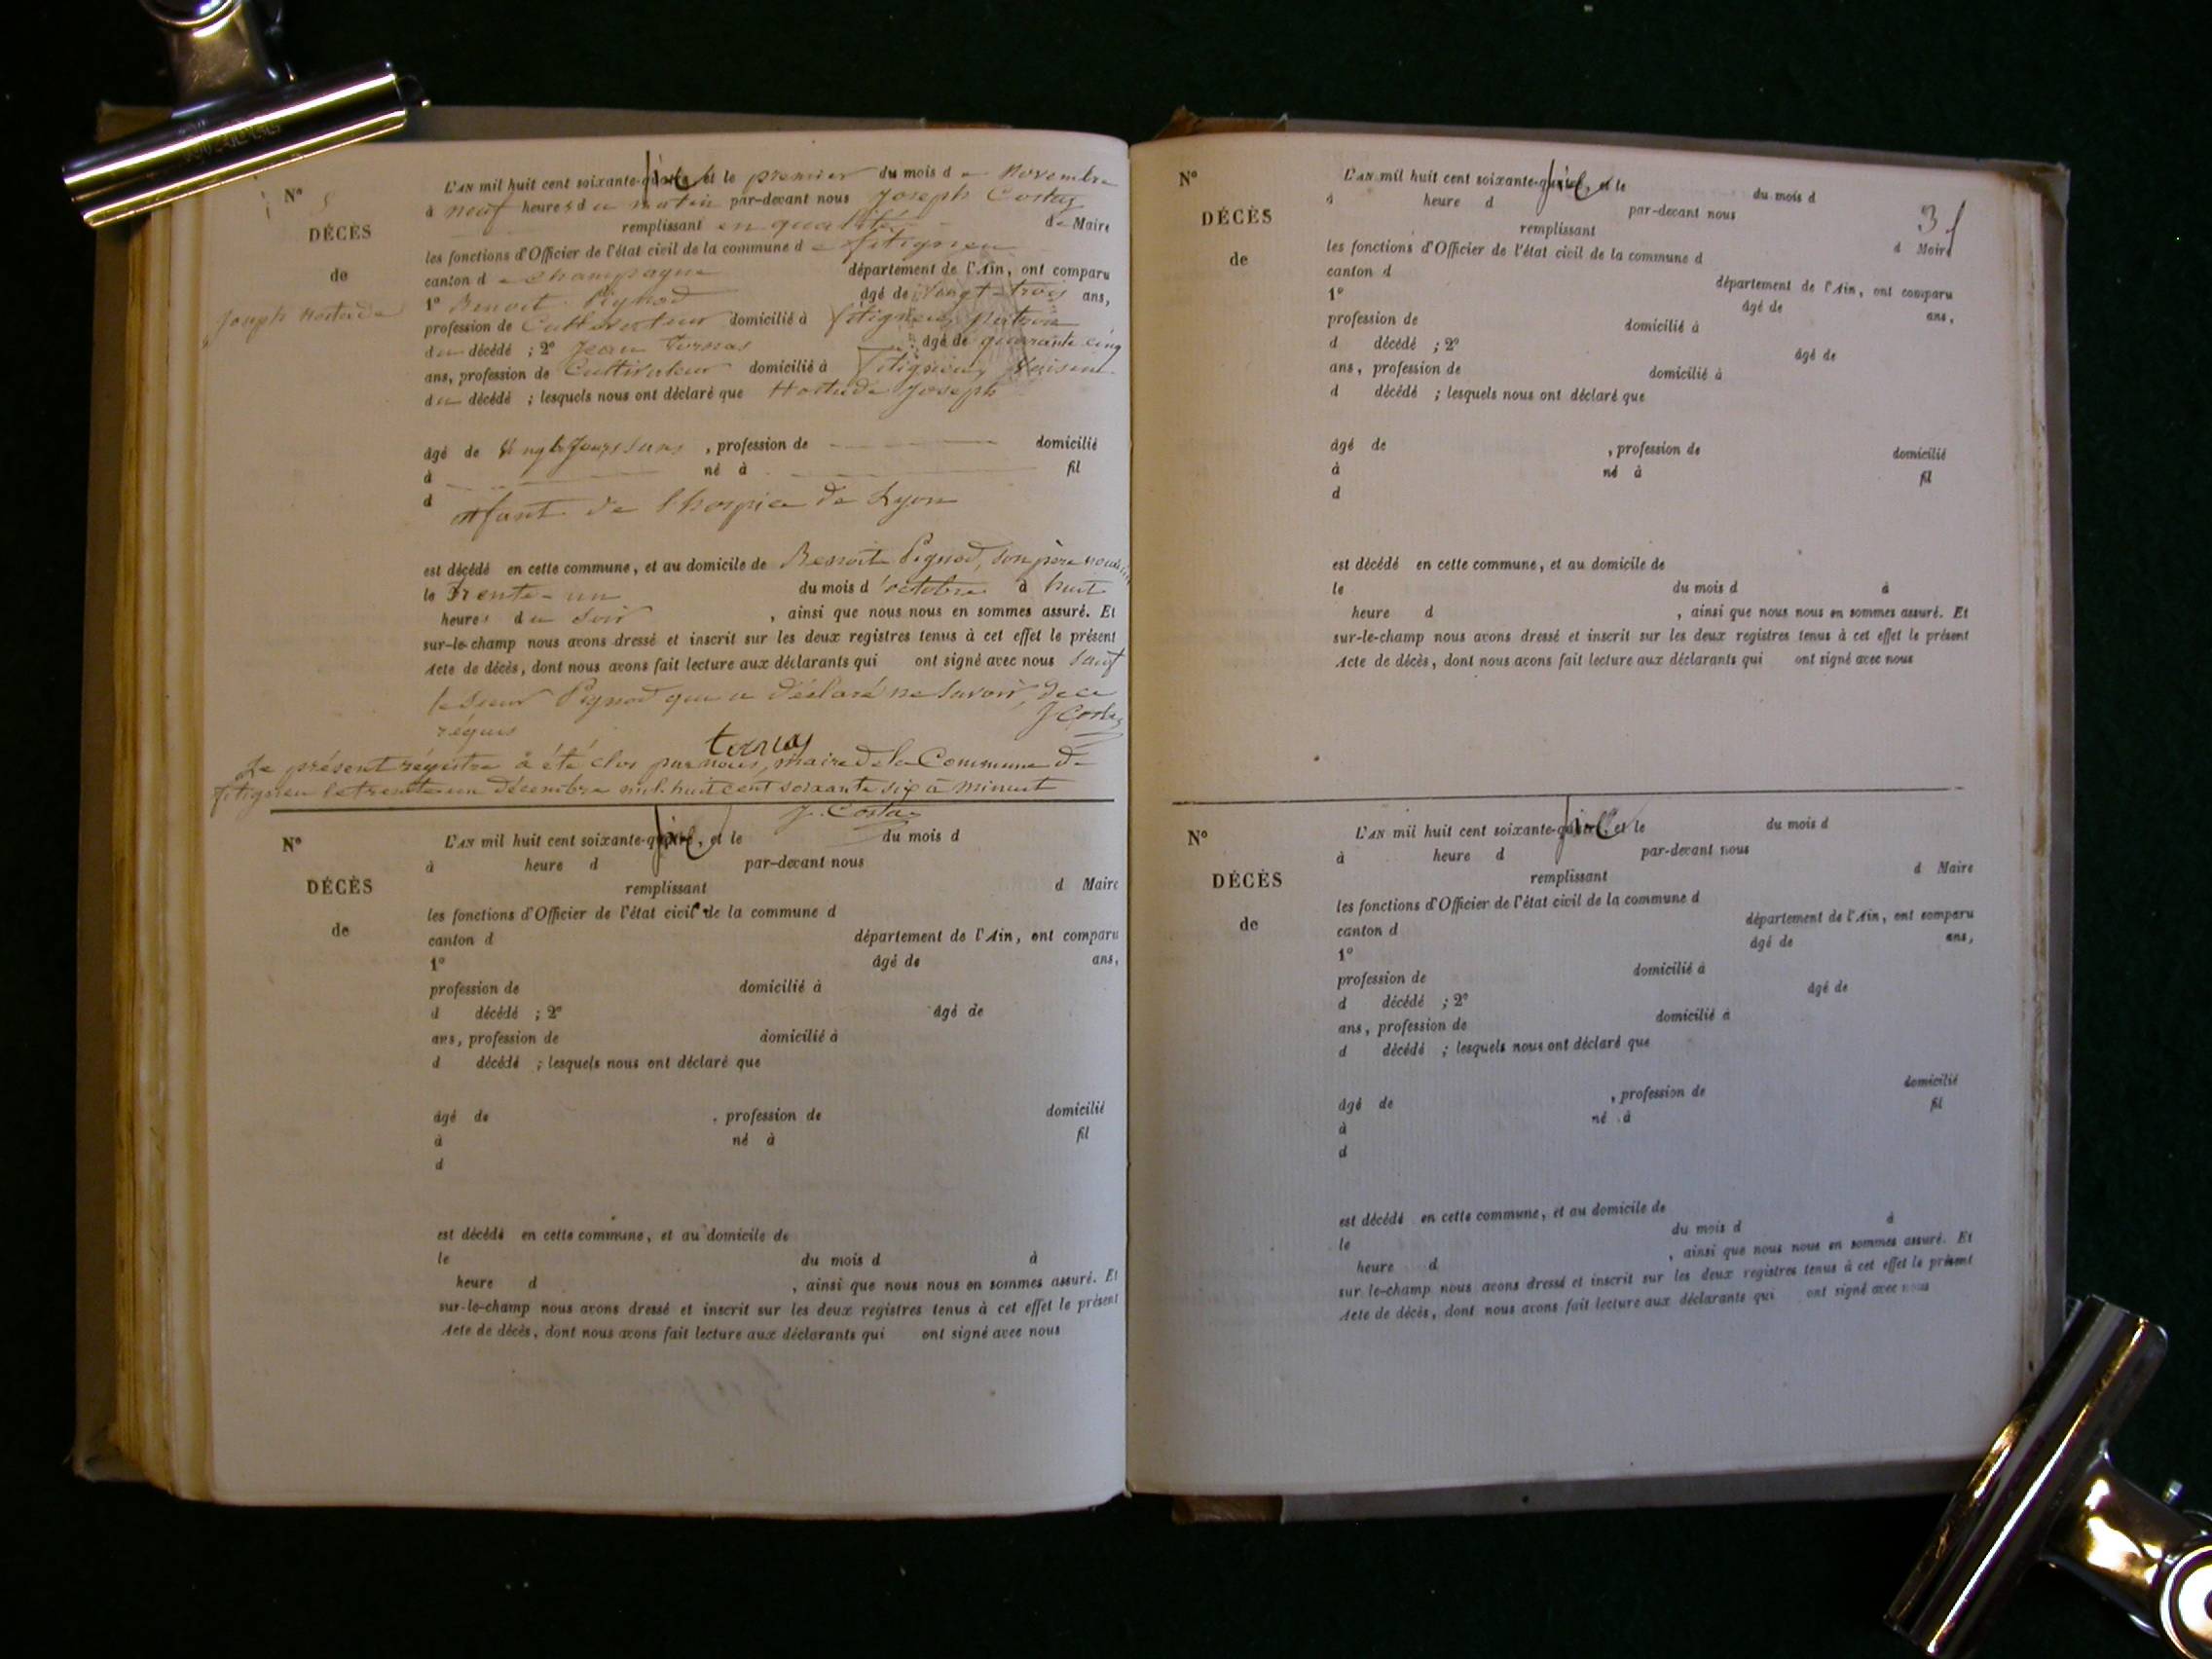 N° 5
DÉCÈS
de
Joseph
L'AN mil huit cent soixante-six, et le premier du mois de Novembre
à neuf heures du matin par-devant nous Joseph Costaz
remplissant en qualité de Maire
les fonctions d'Officier de l'état civil de la commune de fitignieu
canton de champagne département de l'Ain, ont comparu
1° Benoit Pignod âgé de Vingt-trois ans,
profession de Cultivateur domicilié à fitignieu,
du décédé ; 2° Jean tornas âgé de quarante cinq
ans, profession de Cultivateur domicilié à fitignieu, Voisin
du décédé ; lesquels nous ont déclaré que Joseph
âgé de Vingt Jours sans , profession de domicilié
à né à fil
d enfant de l'hospice de Lyon
est décédé en cette commune, et au domicile de Benoit Pignod, son père nourricier
le trente-un du mois d'octobre à huit
heures du soir , ainsi que nous nous en sommes assuré. Et
sur-le-champ nous avons dressé et inscrit sur les deux registres tenus à cet effet le présent
Acte de décès, dont nous avons fait lecture aux déclarants qui ont signé avec nous sauf
le sieur Pignod qui a déclaré ne savoir, de ce
réquis J Costaz
tornas
Le présent régistre à été clos par nous, maire de la Commune de
fitignieu le trente un décembre mil huit cent soixante six à minuit
J. Costaz
N°
DÉCÈS
de
L'AN mil huit cent soixante-six, et le du mois d
à heure d par-devant nous
remplissant d Maire
les fonctions d'Officier de l'état civil de la commune d
canton d département de l'Ain, ont comparu
1° âgé de ans,
profession de domicilié à
d décédé ; 2° âgé de
ans, profession de domicilié à
d décédé ; lesquels nous ont déclaré que
âgé de , profession de domicilié
à né à fil
d
est décédé en cette commune, et au domicile de
le du mois d à
heure d , ainsi que nous nous en sommes assuré. Et
sur-le-champ nous avons dressé et inscrit sur les deux registres tenus à cet effet le présent
Acte de décès, dont nous avons fait lecture aux déclarants qui ont signé avec nous
N°
DÉCÈS
de
31
L'AN mil huit cent soixante-six, et le du mois d
à heure d par-devant nous
remplissant d Maire
les fonctions d'Officier de l'état civil de la commune d
canton d département de l'Ain, ont comparu
1° âgé de ans,
profession de domicilié à
d décédé ; 2° âgé de
ans, profession de domicilié à
d décédé ; lesquels nous ont déclaré que
âgé de , profession de domicilié
à né à fil
d
est décédé en cette commune, et au domicile de
le du mois d à
heure d , ainsi que nous nous en sommes assuré. Et
sur-le-champ nous avons dressé et inscrit sur les deux registres tenus à cet effet le présent
Acte de décès, dont nous avons fait lecture aux déclarants qui ont signé avec nous
N°
DÉCÈS
de
L'AN mil huit cent soixante-six, et le du mois d
à heure d par-devant nous
remplissant d Maire
les fonctions d'Officier de l'état civil de la commune d
canton d département de l'Ain, ont comparu
1° âgé de ans,
profession de domicilié à
d décédé ; 2° âgé de
ans, profession de domicilié à
d décédé ; lesquels nous ont déclaré que
âgé de , profession de domicilié
à né à fil
d
est décédé en cette commune, et au domicile de
le du mois d à
heure d , ainsi que nous nous en sommes assuré. Et
sur le-champ nous avons dressé et inscrit sur les deux registres tenus à cet effet le présent
Acte de décès, dont nous avons fait lecture aux déclarants qui ont signé avec nous